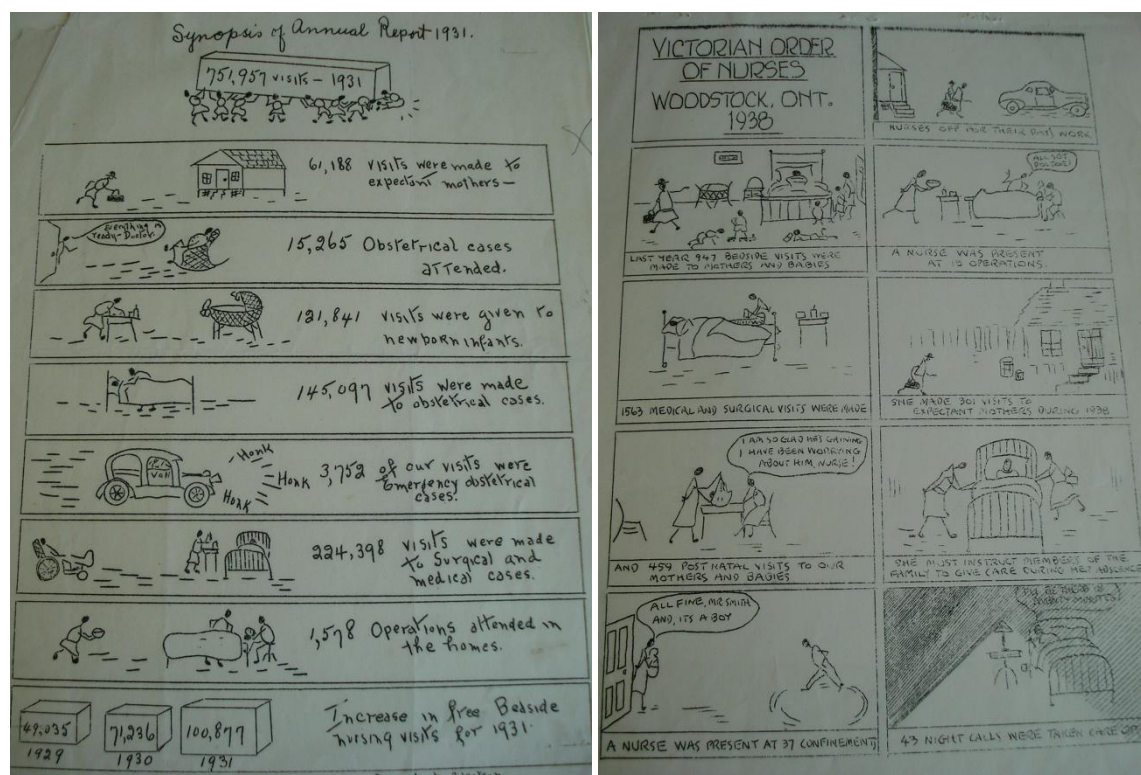 Synopsis of Annual Report 1931.
751,957 visits - 1931
61,188 visits were made to
expectant mothers —
Everything is
ready - Doctor
15,265 Obstetrical cases
attended.
121,841 visits were given to
newborn infants.
145,097 visits were made
to obstetrical cases.
V.O.N
Honk
Honk
Honk
3,752 of our visits were
Emergency obstetrical
cases.
224,398 visits were made
to Surgical and
medical cases.
1,578 Operations attended in
the homes.
49,035
1929
71,236
1930
100,877
1931
Increase in free Bedside
nursing visits for 1931.
VICTORIAN ORDER
OF NURSES
WOODSTOCK, ONT.
1938
NURSES OFF FOR THEIR DAY'S WORK
LAST YEAR 947 BEDSIDE VISITS WERE
MADE TO MOTHERS AND BABIES
ALL SET
DOCTOR!
A NURSE WAS PRESENT
AT OPERATIONS.
1563 MEDICAL AND SURGICAL VISITS WERE MADE
SHE MADE 301 VISITS TO
EXPECTANT MOTHERS DURING 1938
I AM SO GLAD HE'S GAINING
I HAVE BEEN WORRYING
ABOUT HIM, NURSE!
AND 459 POST NATAL VISITS TO OUR
MOTHERS AND BABIES
SHE MUST INSTRUCT MEMBERS OF THE
FAMILY TO GIVE CARE DURING HER ABSENCE
ALL FINE, MR SMITH
AND, ITS A BOY
A NURSE WAS PRESENT AT 37 CONFINEMENTS
I'LL BE THERE IN
MINUTES
43 NIGHT CALLS WERE TAKEN CARE OF